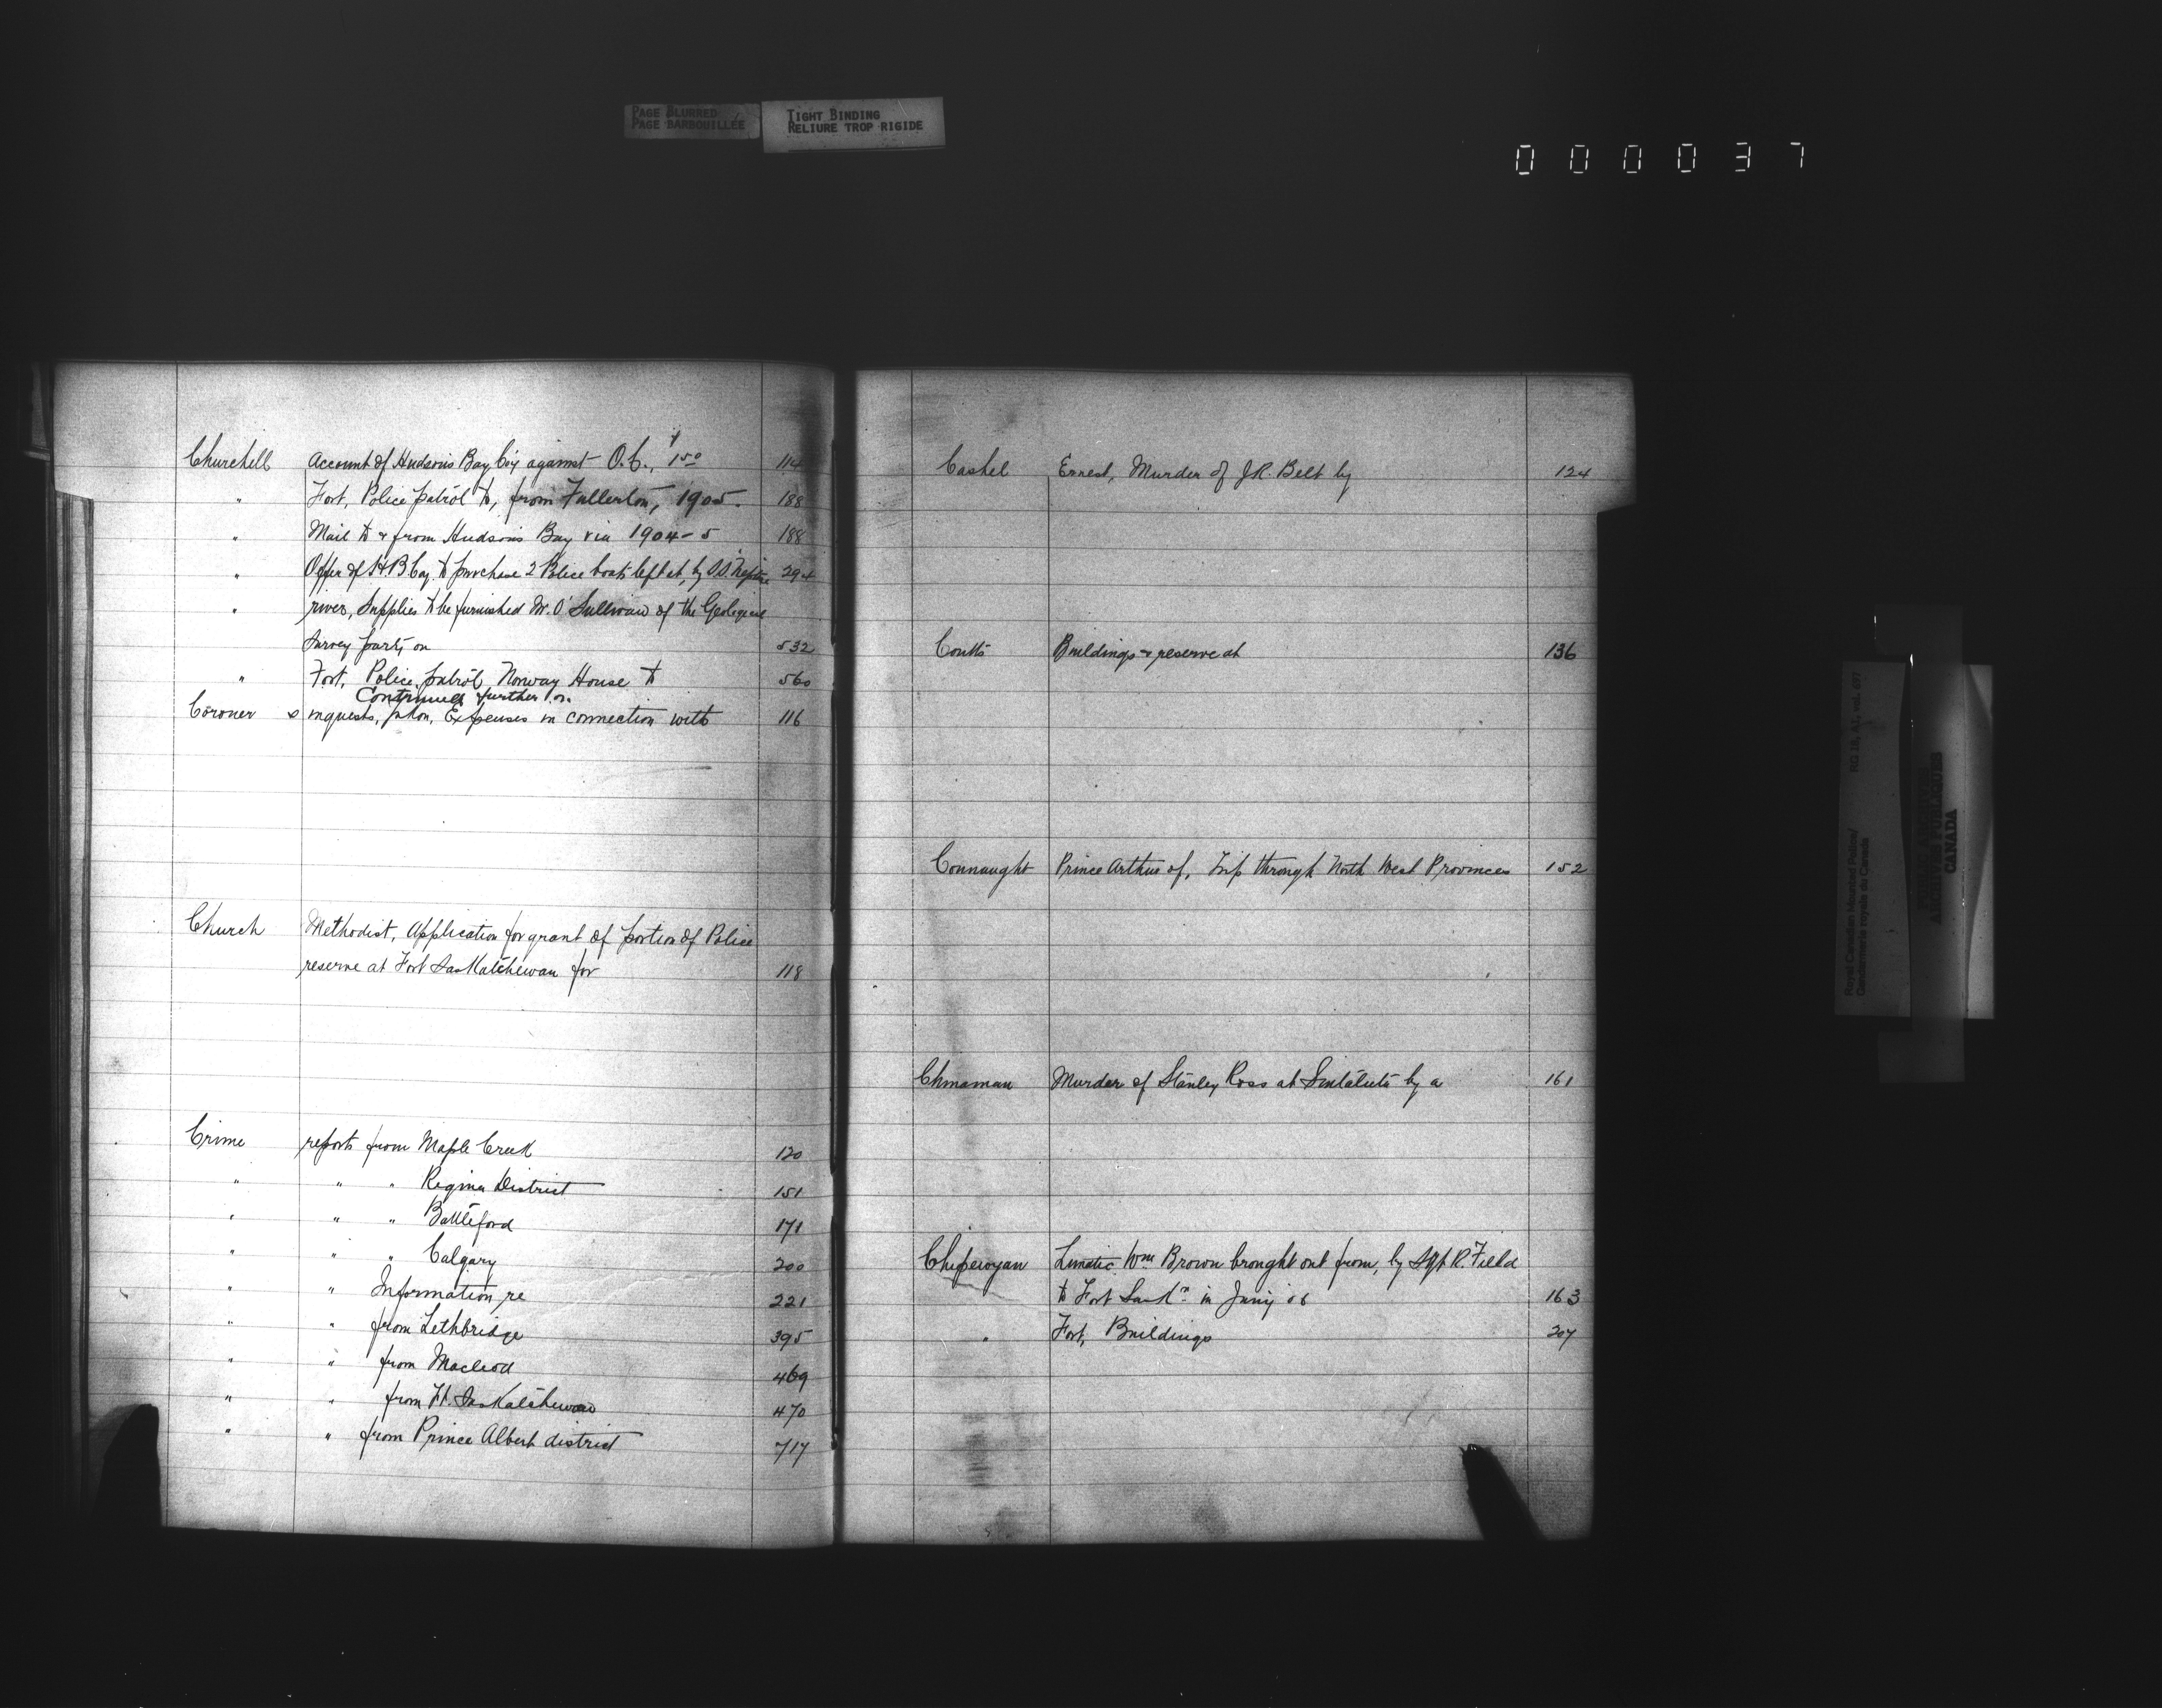 PAGE BLURRED
PAGE BARBOUILLÉE
TIGHT BINDING
RELIURE TROP RIGIDE
000037
Churchill Account of Hudson's Bay Coy against O.C., $1.50 114
" Fort, Police patrol to, from Fullerton, 1905. 188
" Mail to & from Hudson's Bay via 1904-5 188
" Offer of H B Coy. to purchase 2 Police boats left at, by S.S. Neptune 294
" river, Supplies to be furnished Mr. O'Sullivan of the Geological
Survey party on 532
" Fort, Police patrol Norway House to 560
Continued further on.
Coroner s inquests, Expenses in connection with 116
Church Methodist, Application for grant of portion of Police
reserve at Fort Saskatchewan for 118
Crime reports from Maple Creek 120
" " " Regina District 151
" " " Battleford 171
" " " Calgary 200
" " Information re 221
" " from Lethbridge 395
" " from Macleod 469
" " from Ft. Saskatchewan 470
" " from Prince Albert district 717
Cashel Ernest, Murder of J.R. Belt by 124
Coutts Buildings & reserve at 136
Connaught Prince Arthur of, Trip through North West Provinces 152
Chinaman Murder of Stanley Ross at Sintaluta by a 161
Chipewyan Lunatic Wm Brown brought out from, by Sgt R. Field
to Fort Sask'n in Jany 06 163
" Fort, Buildings 207
Royal Canadian Mounted Police/
Gendarmerie royale du Canada
RG 18, A1, vol. 697
PUBLIC ARCHIVES
ARCHIVES PUBLIQUES
CANADA